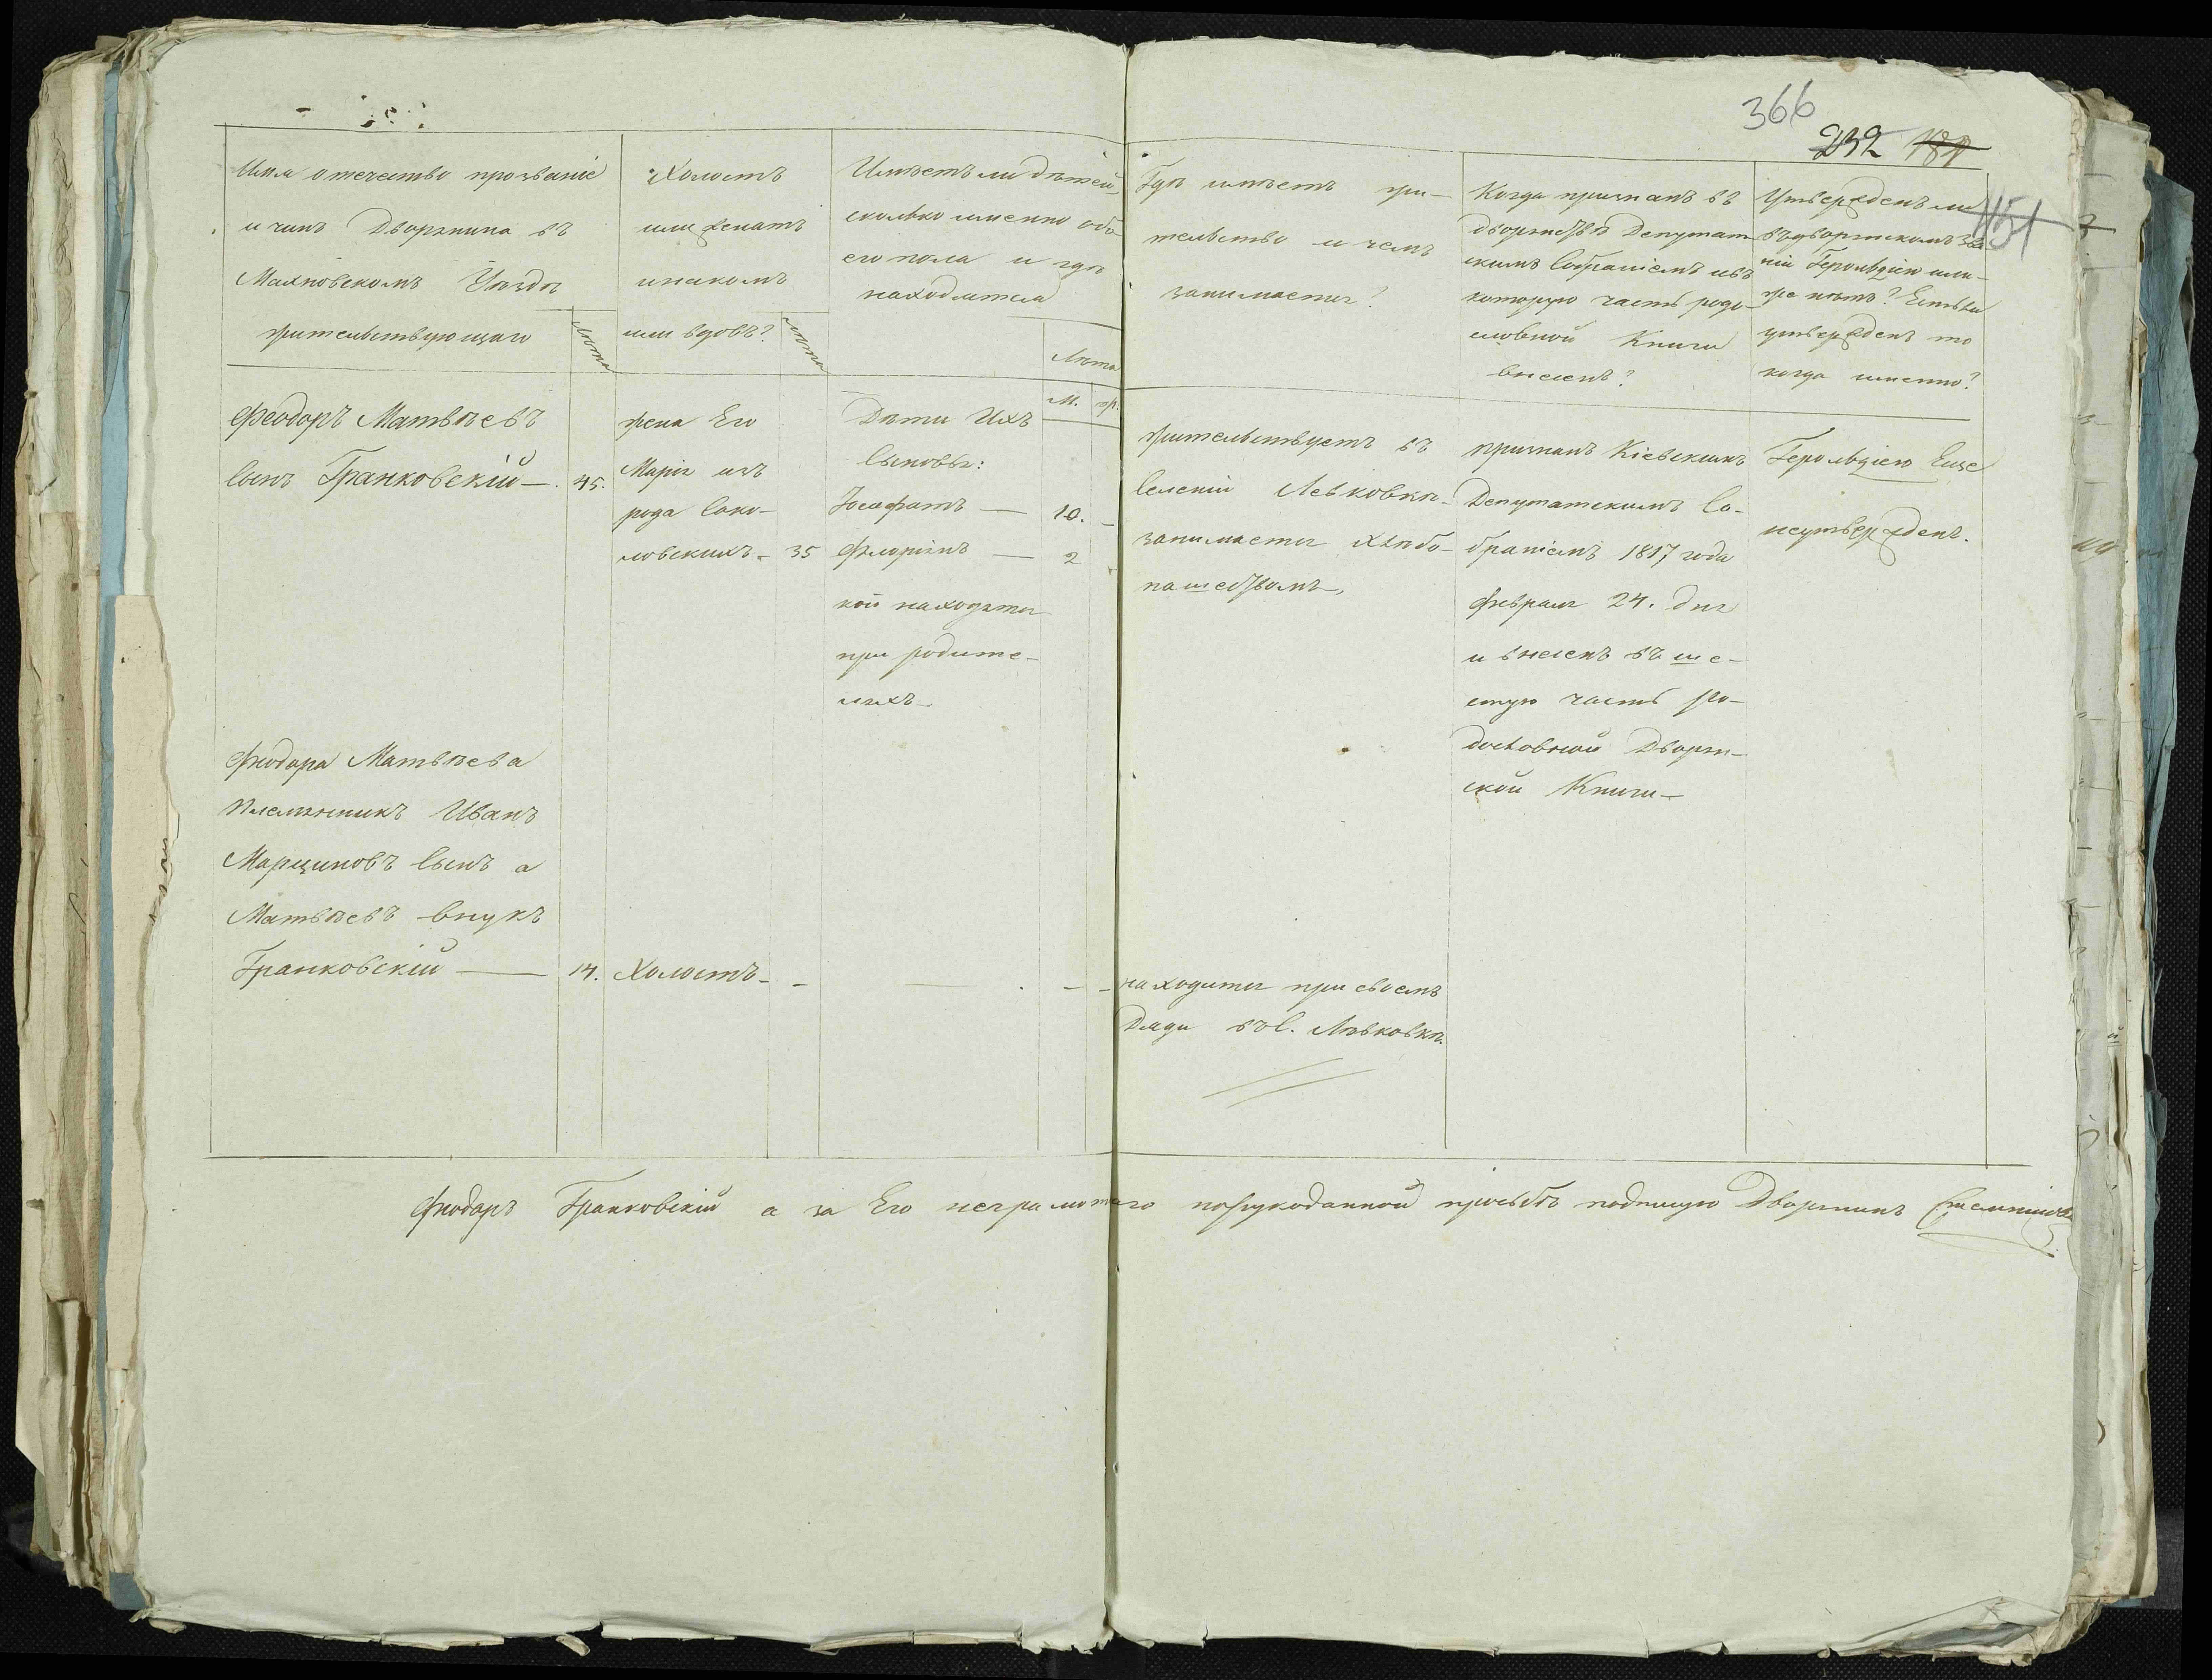 366
232 181
451
Имя отечество прозваніе
и чинъ Дворянина въ
Махновскомъ Уѣздѣ
жительствующаго
Лѣта
Холостъ
или женатъ
инакомъ
или вдовъ?
Лѣта
Имѣетъ ли дѣтей
сколько именно обо
его пола и гдѣ
находятся
Лѣта
М. ж.
Гдѣ имѣетъ жи-
тельство и чемъ
занимается?
Когда признанъ въ
дворянствѣ Депутат
скимъ Собраніемъ и въ
которую часть родо-
словной Книги
внесенъ?
Утвержденъ ли
въ дворянскомъ зва
ніи Герольдіею или-
же нѣтъ? Естьли
утвержденъ то
когда именно?
Феодоръ Матвѣевъ
сынъ Гранковскій — 45.
жена Его
Марія изъ
рода Соко-
ловскихъ - 35
Дѣти Ихъ
сыновья:
Іосафатъ — 10. -
Флоріянъ — 2
кои находятся
при родите-
ляхъ -
жительствуетъ въ
селеніи Левковкѣ-
занимается хлѣбо-
пашествомъ,
признанъ Кіевскимъ
Депутатскимъ Со-
браніемъ 1817 года
февраля 24. дня
и внесенъ въ ше-
стую часть Ро-
дословной Дворян-
ской Книги -
Герольдіею Еще
неутвержденъ.
Фиодора Матвѣева
племянникъ Иванъ
Марциновъ сынъ а
Матвѣевъ внукъ
Гранковскій — 14. Холостъ - - — . - -
находится при своемъ
Дяди въ С. Лѣвковкѣ.
Фиодоръ Гранковскій а за Его неграмотнаго порукоданной прозьбѣ подпишую Дворянинъ